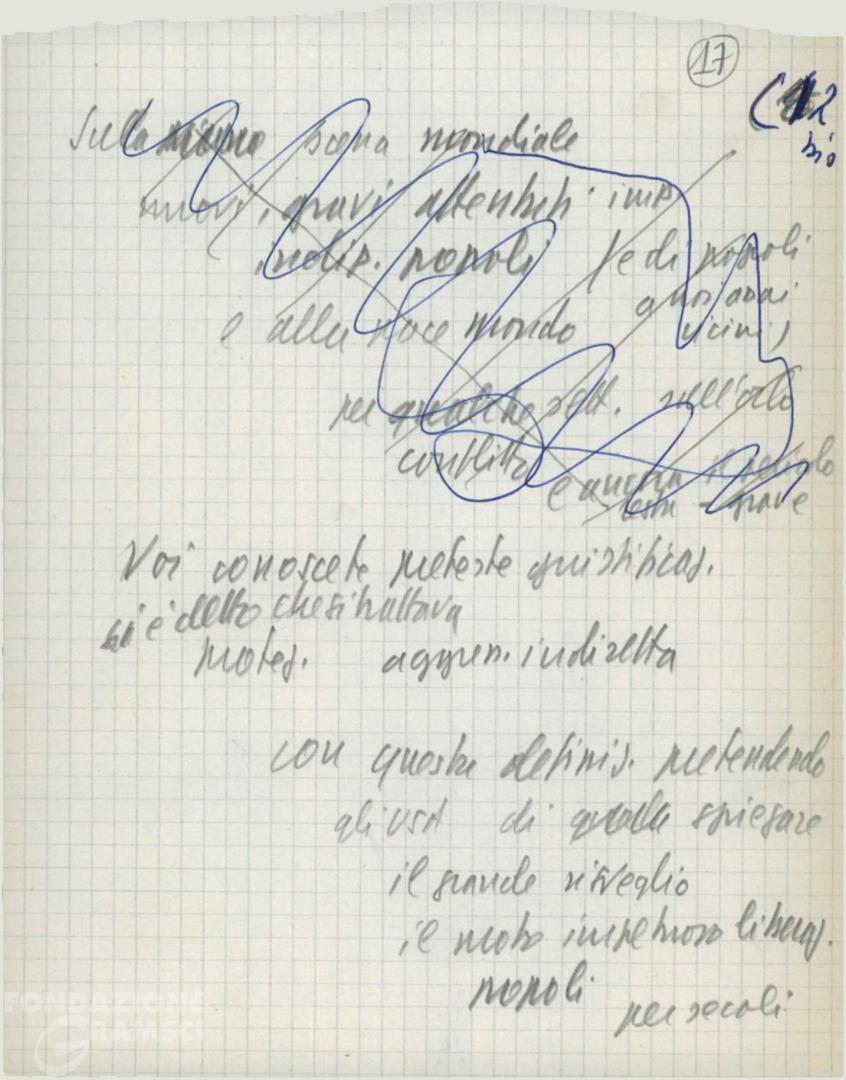 17
bis
Sulla scena mondiale
nuovi, gravi attentati imp.
indip. popoli (e di popoli
a noi assai
vicini)
e alla pace mondo
per qualche sett. sull'orlo
conflitto
e ancora il pericolo
grave
Voi conoscete preteste giustificaz.
si è detto che si trattava
protez. aggres. indiretta
con questa definiz. pretendendo
gli USA di spiegare
il grande risveglio
il moto impetuoso liberaz.
popoli
per secoli
FONDAZIONE
GRAMSCI